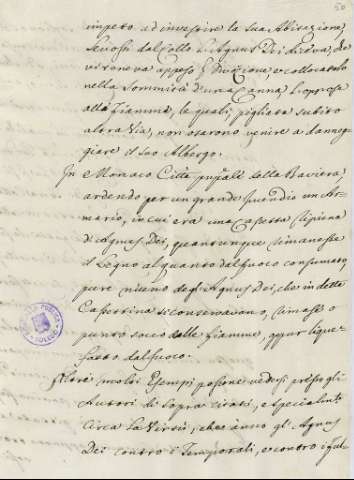 50
impeto ad investire la sua Abitazione,
levossi dal collo l'Agnus Dei di cera, che
vi teneva appeso p divozione e collocatolo
nella sommità d'una Canna l'oppose
alle Fiamme, le quali, pigliata subito
altra via, non osarono venire a danneg=
giare il suo Albergo.
In Monaco Città della Baviera,
ardendo per un grande Incendio un Ar=
mario, in cui era una Cassetta ripiena
di Agnus Dei, quantunque rimanesse
il Legno alquanto dal fuoco consumato,
pure niuno degli Agnus Dei, che in detta
Cassettina si conservavano, rimase o
punto tocco dalle fiamme, oppur lique=
fatto dal fuoco.
Altri molti Esempi possono vedersi presso gli
Autori di sopra citati, e specialmte
circa la Virtù, che anno gli Agnus
Dei contro i Temporali, e contro i ful=